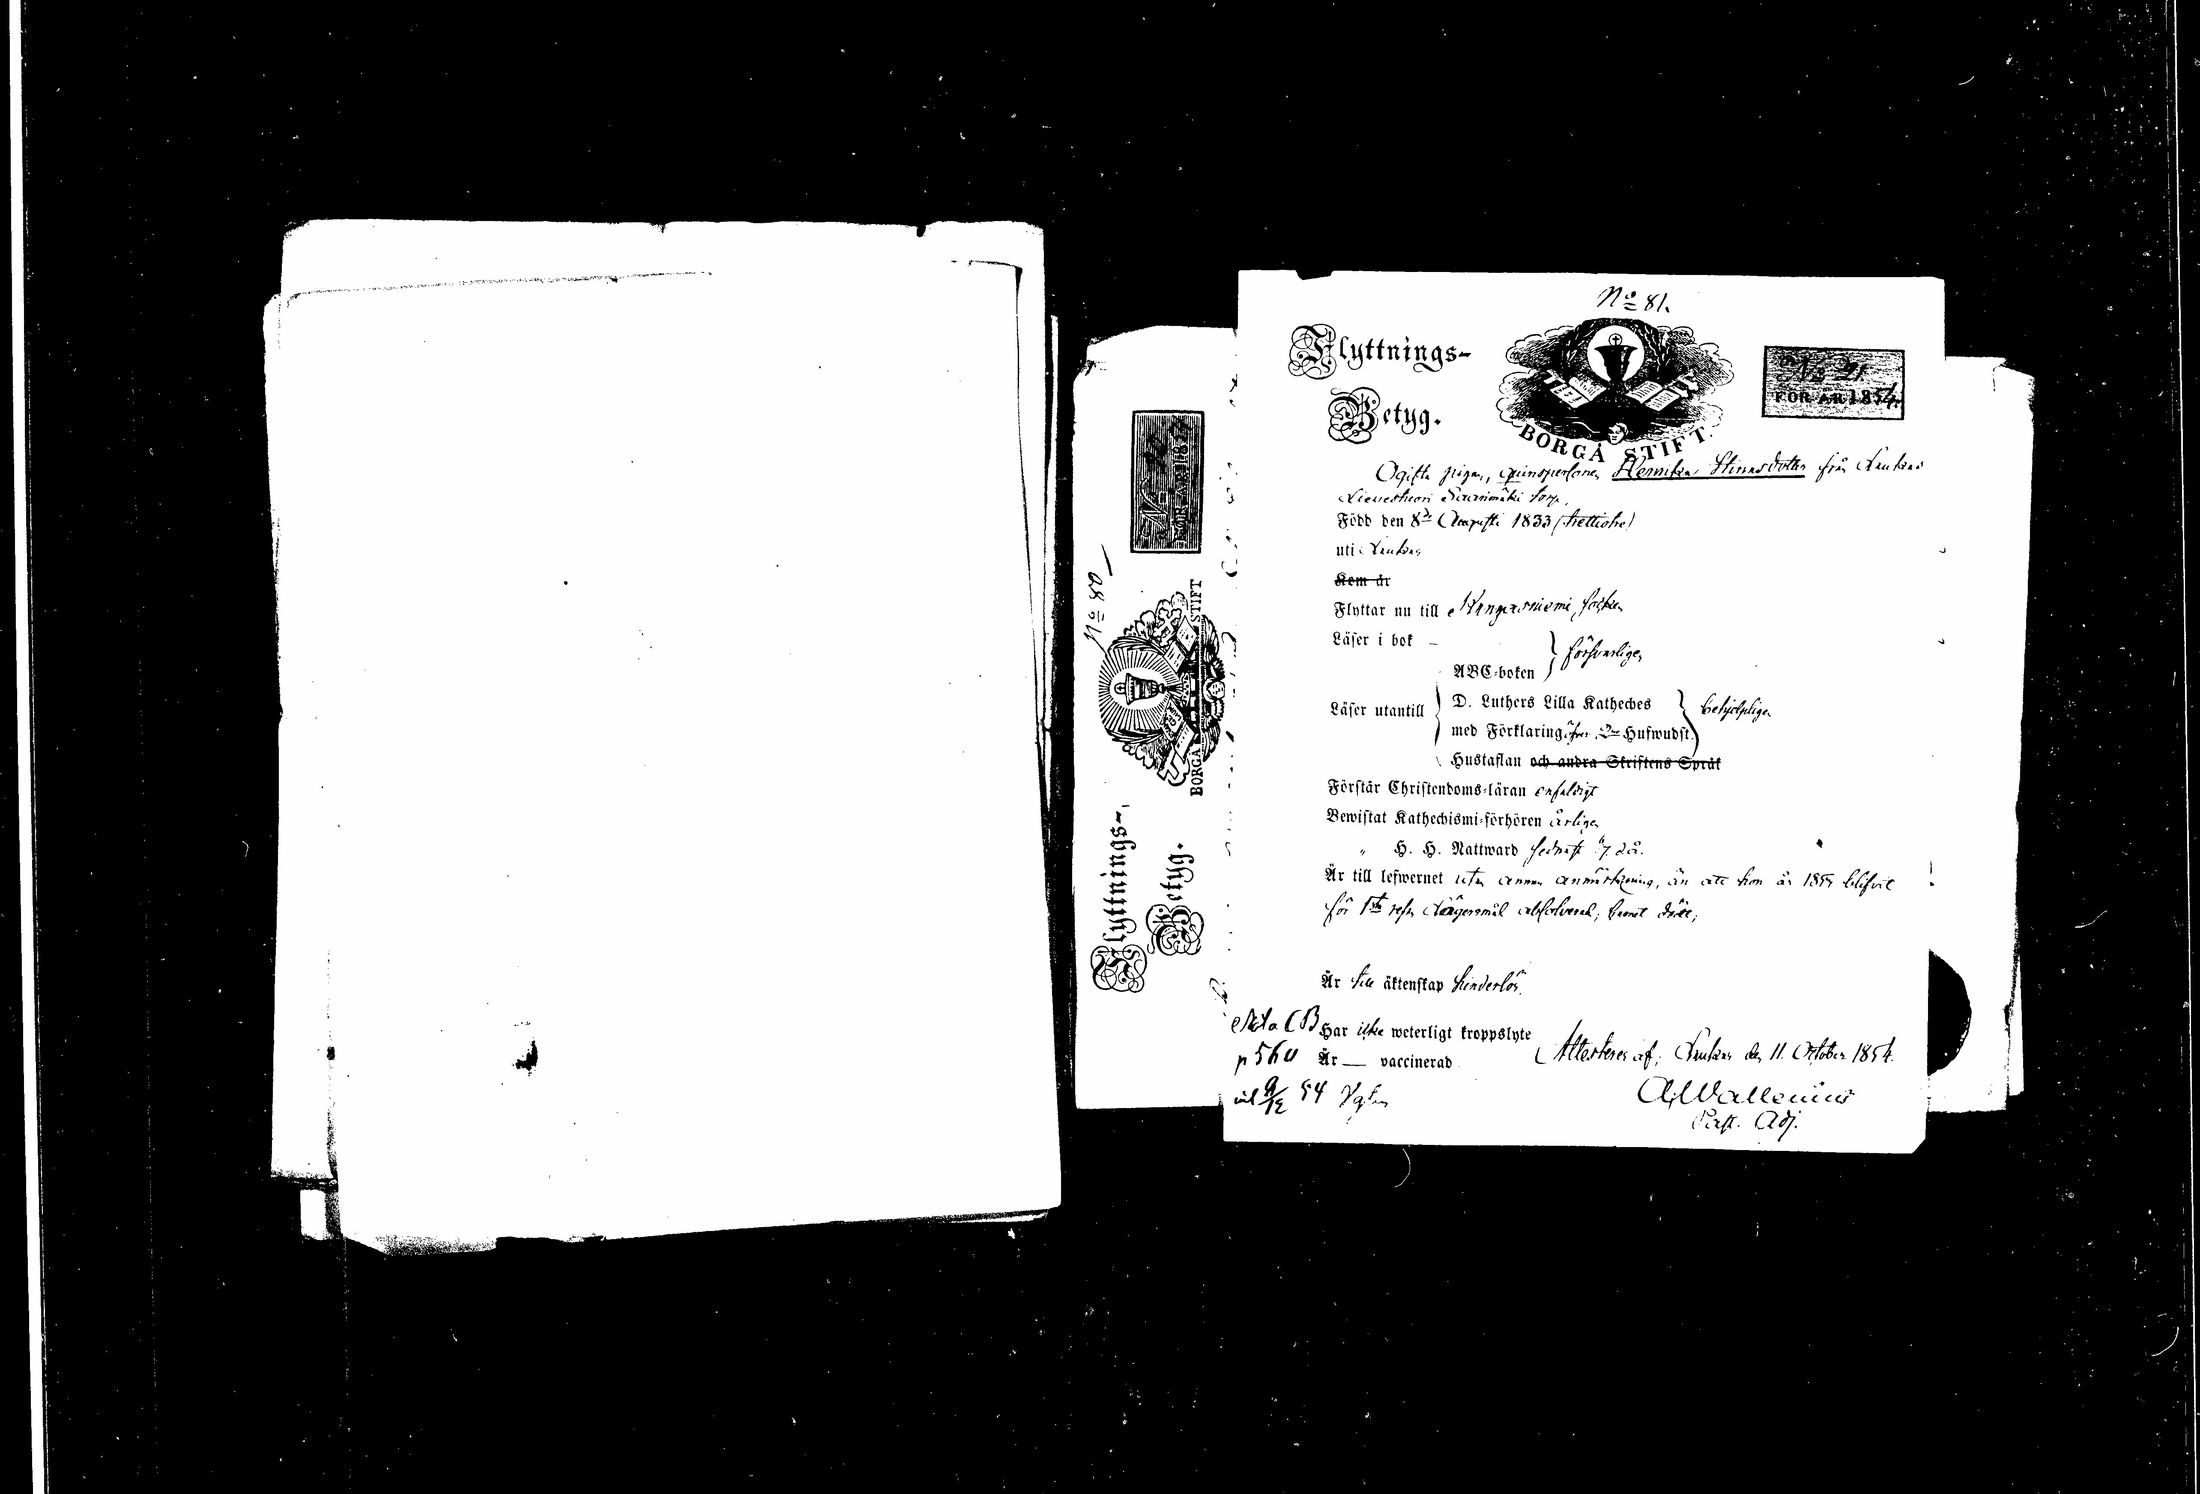 No 81.
Flyttnings-
Betyg.
BORGÅ STIFT.
No 21
FÖR ÅR 1854.
Ogifta pigan, qvinspersonen Stinasdotter från Laukas
Lievestuori torp,
Född den 8de Augusti 1833 (trettiotre)
uti Laukas
Kom år
Flyttar nu till Kangasniemi socken
Läser i bok – försvarligen
ABC-boken
Läser utantill
D. Luthers Lilla Kateches
med Förklaring öfver 2ne Hufwudst.
behjelpligen
Hustaflan och andra Skriftens Språk
Förstår Christendoms-läran enfaldigt
Bewistat Kathechismi-förhören årligen
" H. H. Nattward sednast
Är till lefwernet utan annan anmärkning, än att hon år blifvit
för 1sta resan lägersmål absolverad;
Är till äktenskap hinderlös.
Har icke weterligt kroppslyte
Är — vaccinerad
Attesteras af; Laukas den 11. October 1854.
A Wallenius
Past. Adj.
CB
p 560
9/12 54
No 80
Flyttnings-
Betyg.
BORGÅ STIFT
No
FÖR ÅR 185